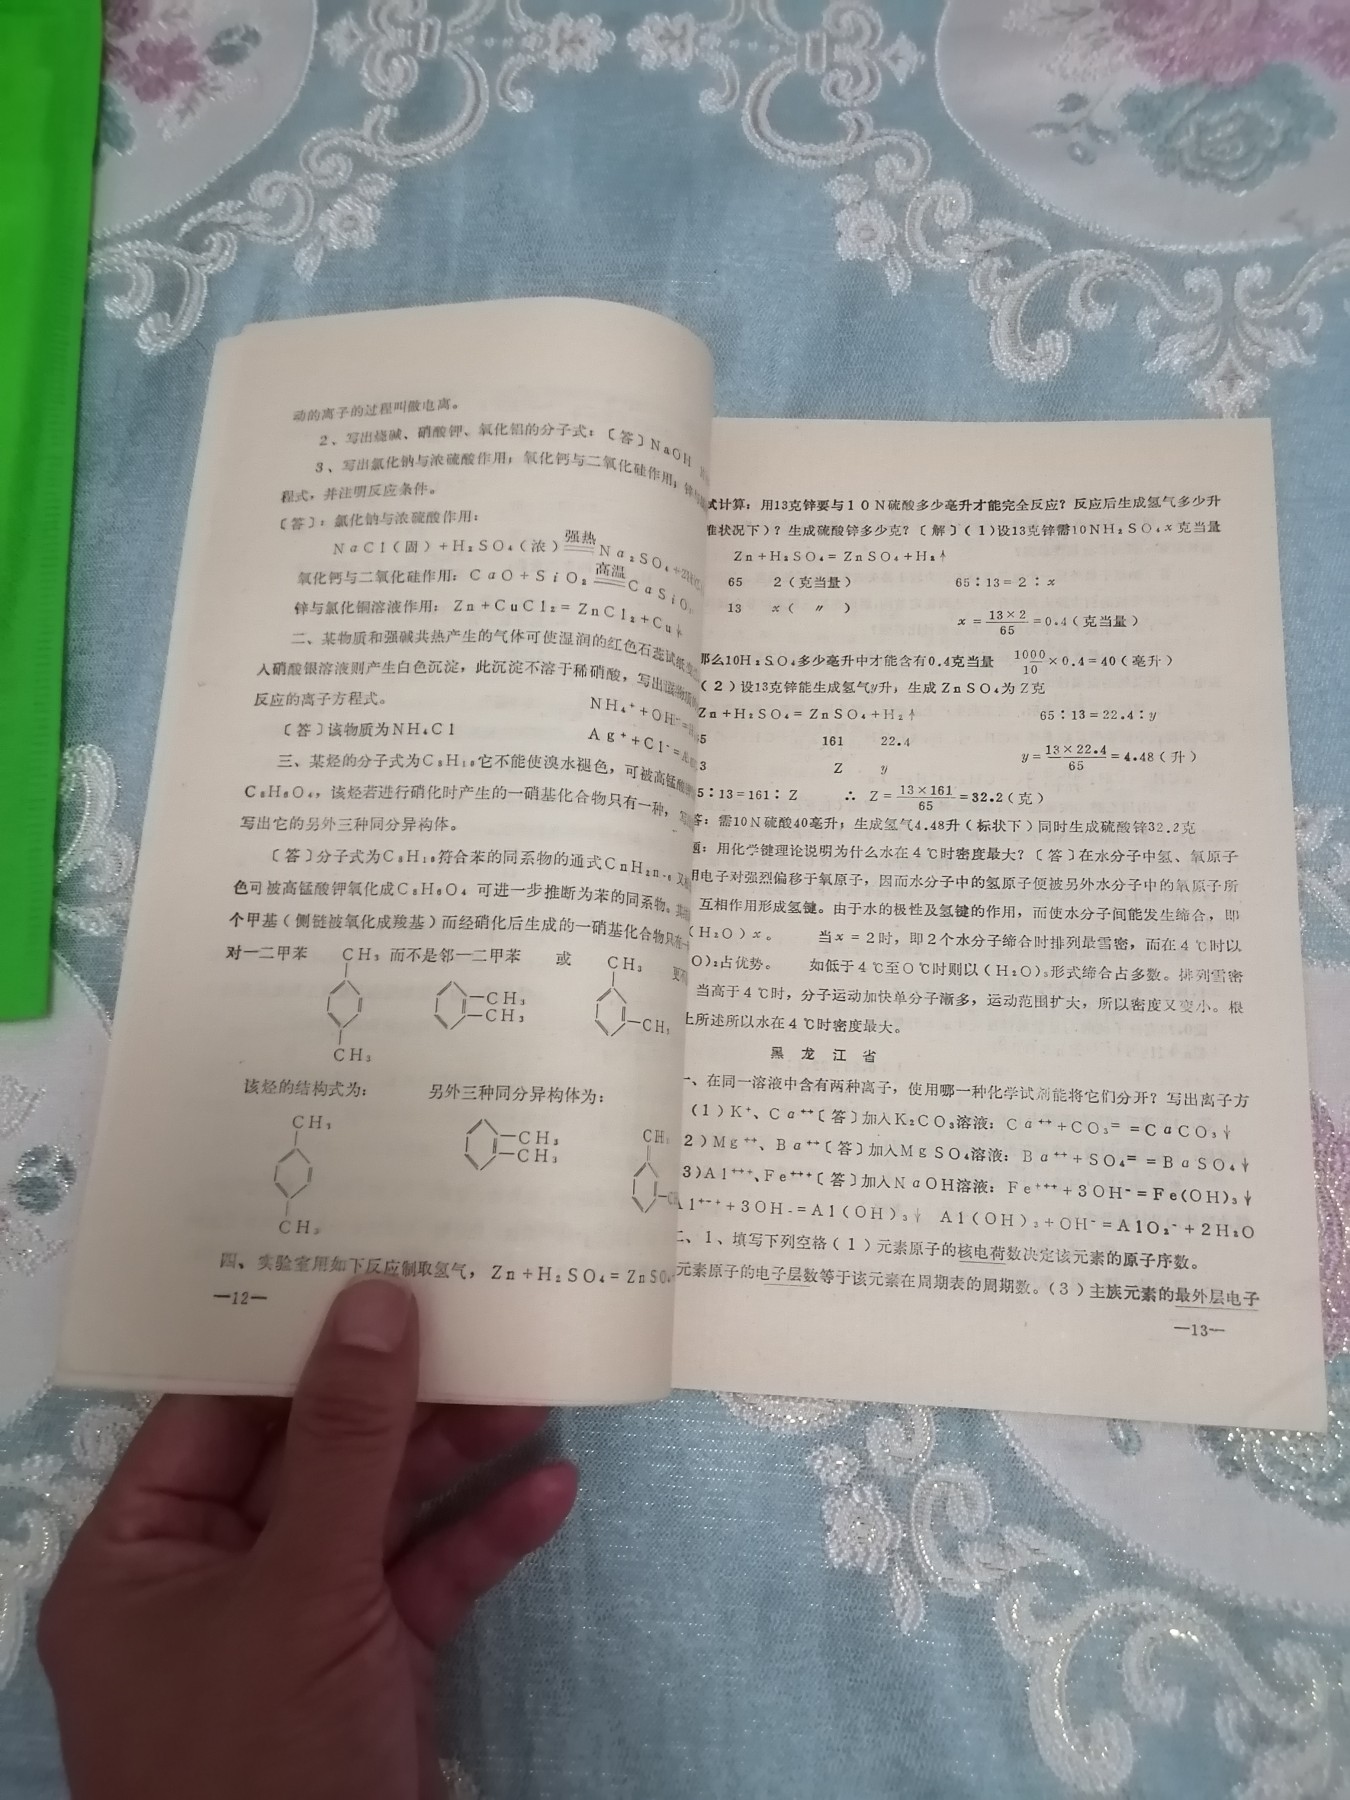 动的离子的过程叫做电离。
2、写出烧碱、硝酸钾、氧化铝的分子式：〔答〕NaOH
3、写出氯化钠与浓硫酸作用；氧化钙与二氧化硅作用；锌与
程式，并注明反应条件。
〔答〕：氯化钠与浓硫酸作用：
NaCl（固）+H₂SO₄（浓）强热══Na₂SO₄+2H
氧化钙与二氧化硅作用：CaO+SiO₂高温══CaSiO
锌与氯化铜溶液作用：Zn+CuCl₂=ZnCl₂+Cu↓
二、某物质和强碱共热产生的气体可使湿润的红色石蕊试纸
入硝酸银溶液则产生白色沉淀，此沉淀不溶于稀硝酸，写出
反应的离子方程式。
〔答〕该物质为NH₄Cl NH₄⁺+OH⁻=
Ag⁺+Cl⁻=
三、某烃的分子式为C₈H₁₀它不能使溴水褪色，可被高锰酸
C₈H₆O₄，该烃若进行硝化时产生的一硝基化合物只有一种，
写出它的另外三种同分异构体。
〔答〕分子式为C₈H₁₀符合苯的同系物的通式CnH₂n₋₆
色可被高锰酸钾氧化成C₈H₆O₄可进一步推断为苯的同系物。
个甲基（侧链被氧化成羧基）而经硝化后生成的一硝基化合物只
对一二甲苯 CH₃ 而不是邻一二甲苯 或 CH₃
CH₃
CH₃
CH₃
CH₃
该烃的结构式为： 另外三种同分异构体为：
CH₃ CH₃ CH
CH₃
CH₃
四、实验室用如下反应制取氢气，Zn+H₂SO₄=ZnSO₄
—12—
试计算：用13克锌要与10N硫酸多少毫升才能完全反应？反应后生成氢气多少升
准状况下）？生成硫酸锌多少克？〔解〕（1）设13克锌需10NH₂SO₄x克当量
Zn+H₂SO₄=ZnSO₄+H₂↑
65 2（克当量） 65：13=2：x
13 x（ 〃 ） x=13×2/65=0.4（克当量）
那么10H₂SO₄多少毫升中才能含有0.4克当量 1000/10×0.4=40（毫升）
（2）设13克锌能生成氢气y升，生成ZnSO₄为Z克
Zn+H₂SO₄=ZnSO₄+H₂↑ 65：13=22.4：y
5 161 22.4
3 Z y y=13×22.4/65=4.48（升）
5：13=161：Z ∴ Z=13×161/65=32.2（克）
答：需10N硫酸40毫升，生成氢气4.48升（标状下）同时生成硫酸锌32.2克
题：用化学键理论说明为什么水在4℃时密度最大？〔答〕在水分子中氢、氧原子
用电子对强烈偏移于氧原子，因而水分子中的氢原子便被另外水分子中的氧原子所
互相作用形成氢键。由于水的极性及氢键的作用，而使水分子间能发生缔合，即
（H₂O）x。 当x=2时，即2个水分子缔合时排列最雪密，而在4℃时以
O）₂占优势。 如低于4℃至O℃时则以（H₂O）₃形式缔合占多数。排列雪密
当高于4℃时，分子运动加快单分子渐多，运动范围扩大，所以密度又变小。根
上所述所以水在4℃时密度最大。
黑龙江省
一、在同一溶液中含有两种离子，使用哪一种化学试剂能将它们分开？写出离子方
（1）K⁺、Ca⁺⁺〔答〕加入K₂CO₃溶液：Ca⁺⁺+CO₃⁼=CaCO₃↓
2）Mg⁺⁺、Ba⁺⁺〔答〕加入MgSO₄溶液：Ba⁺⁺+SO₄⁼=BaSO₄↓
3）Al⁺⁺⁺、Fe⁺⁺⁺〔答〕加入NaOH溶液：Fe⁺⁺⁺+3OH⁻=Fe(OH)₃↓
Al⁺⁺⁺+3OH-=Al(OH)₃↓ Al(OH)₃+OH⁻=AlO₂⁻+2H₂O
二、1、填写下列空格（1）元素原子的核电荷数决定该元素的原子序数。
元素原子的电子层数等于该元素在周期表的周期数。（3）主族元素的最外层电子
—13—